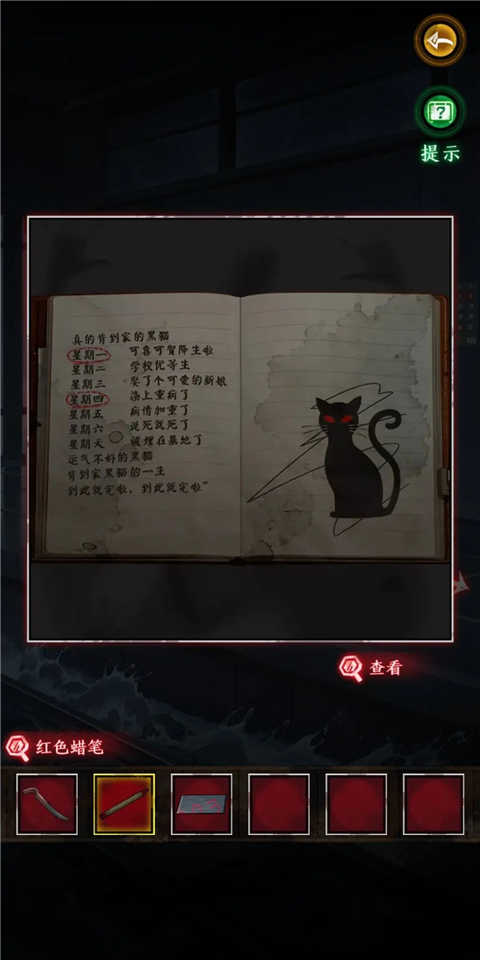 提示
真的背到家的黑貓
星期一 可喜可賀降生啦
星期二 学校优等生
星期三 娶了个可爱的新娘
星期四 染上重病了
星期五 病情加重了
星期六 说死就死了
星期天 被埋在墓地了
运气不好的黑貓
背到家黑貓的一生
到此就完啦，到此就完啦”
查看
红色蜡笔